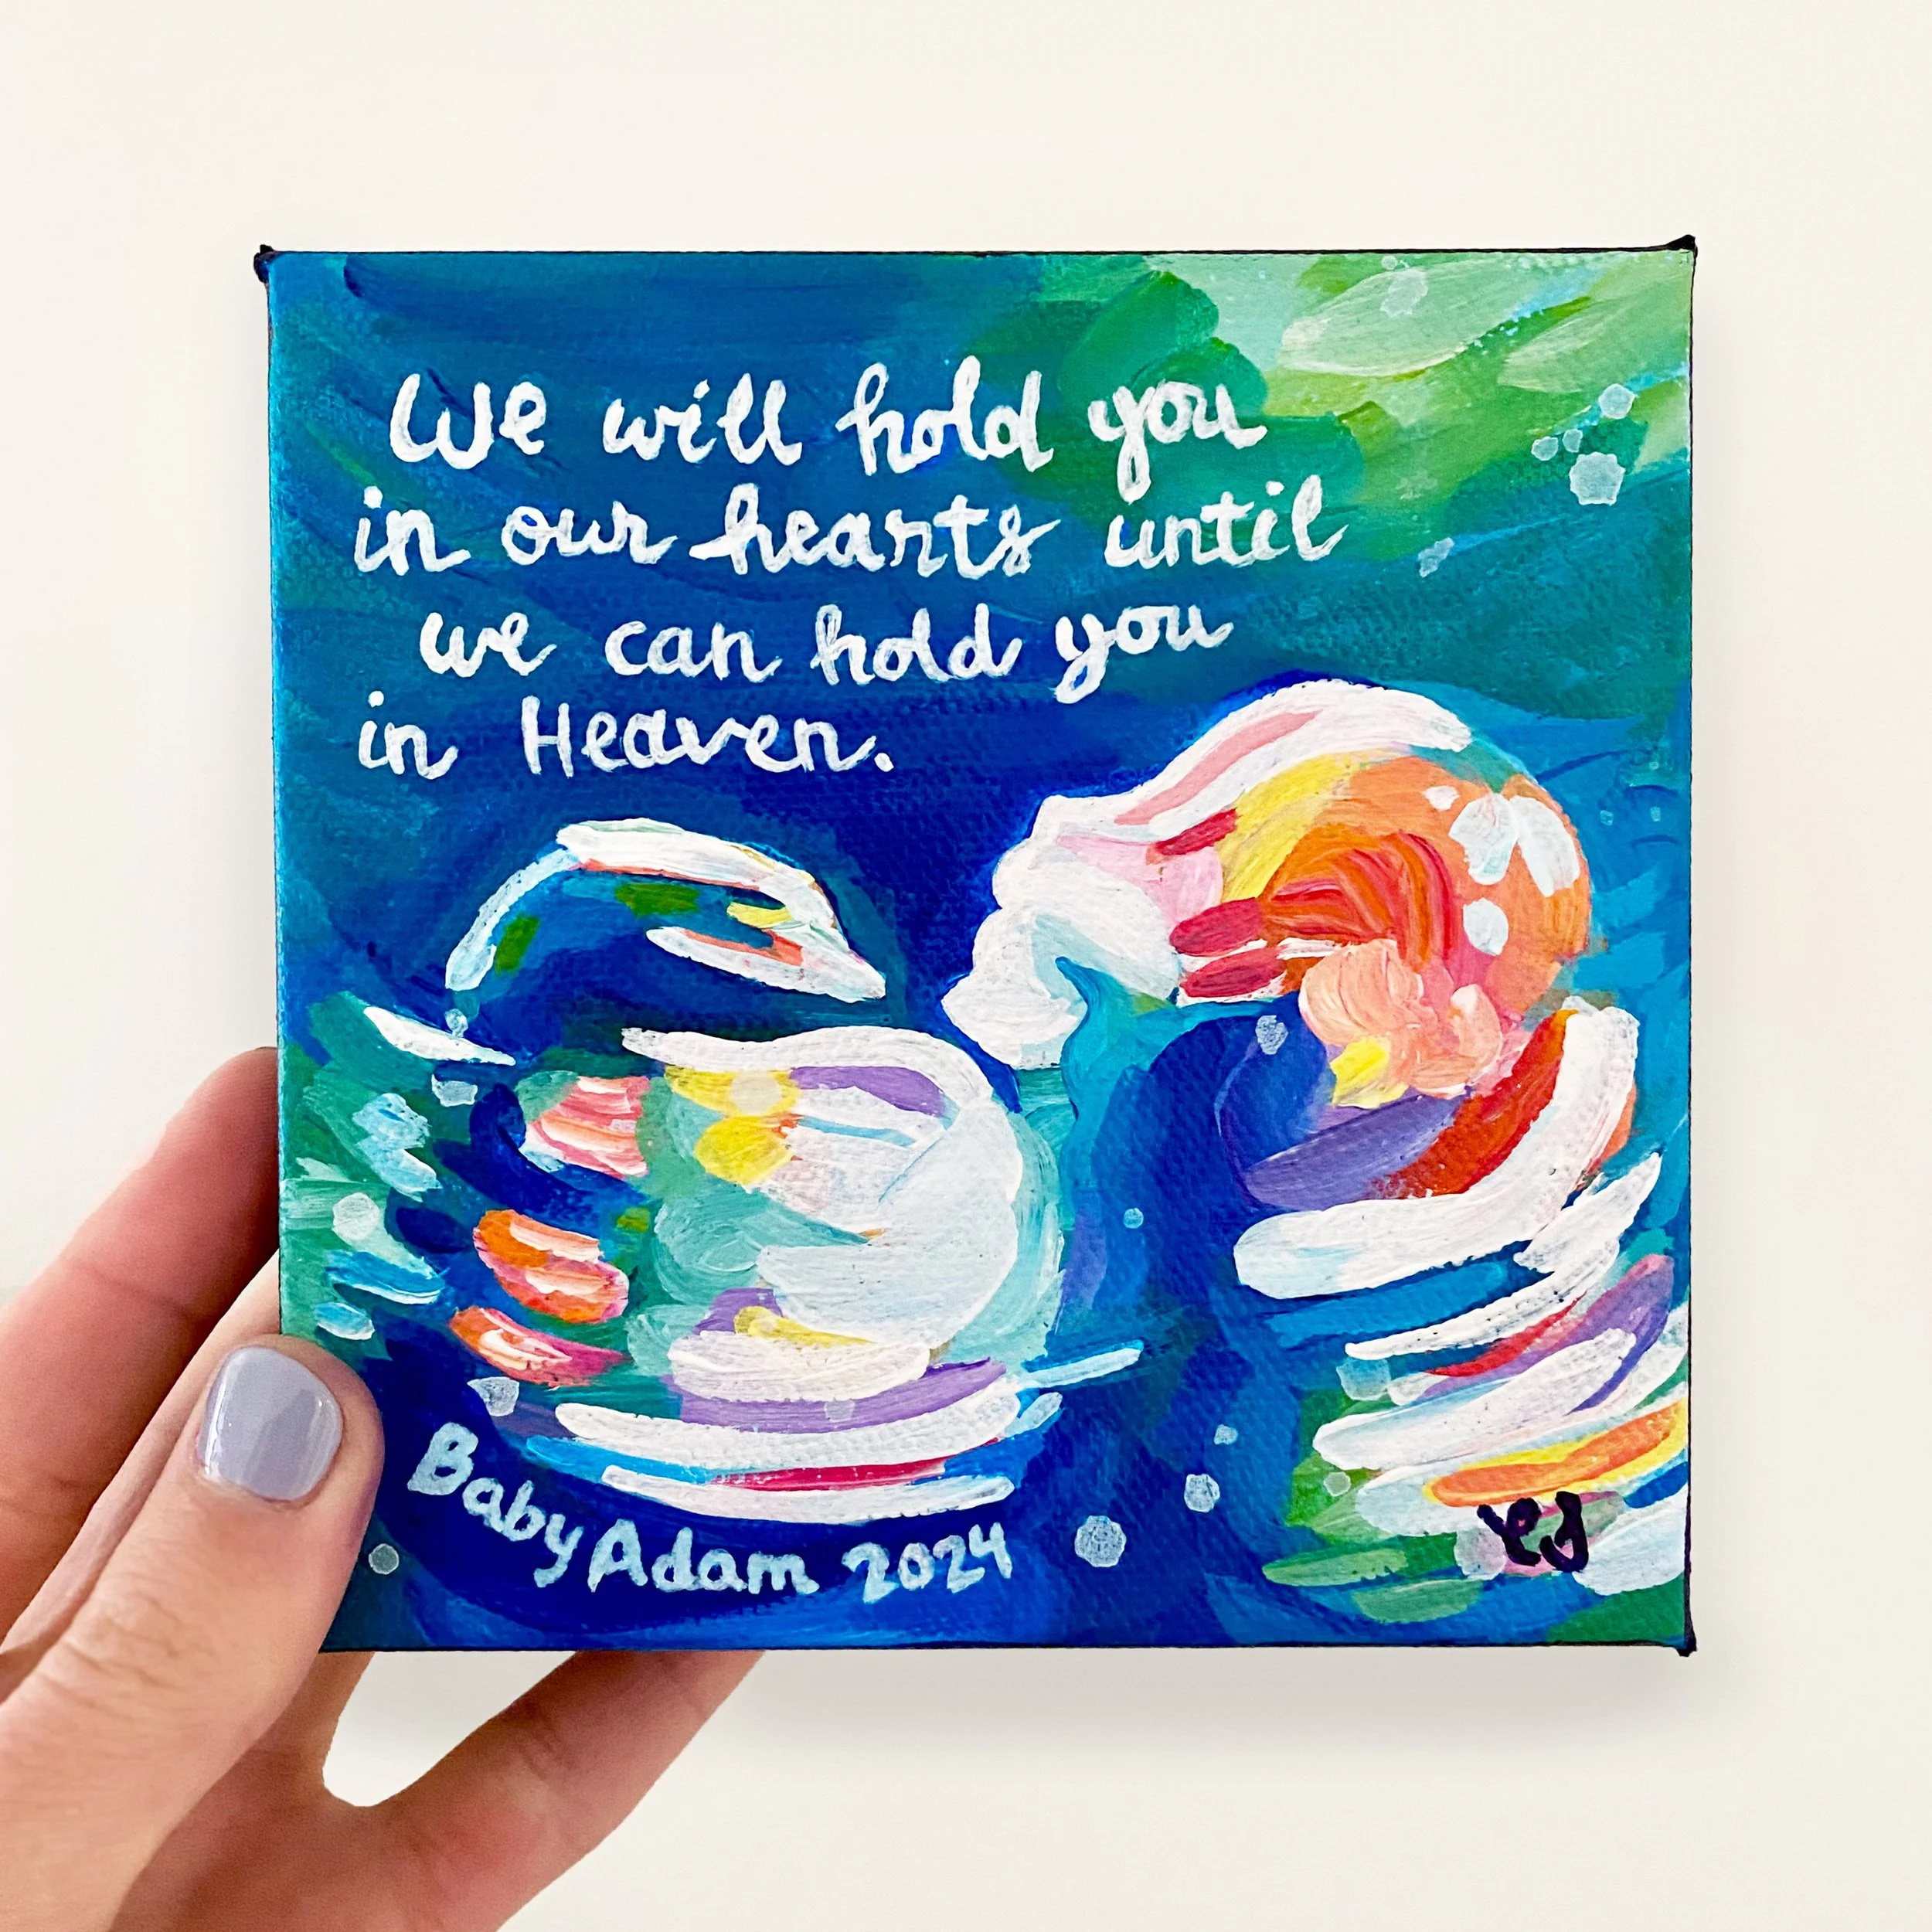 We will hold you
in our hearts until
we can hold you
in Heaven.
Baby Adam 2024